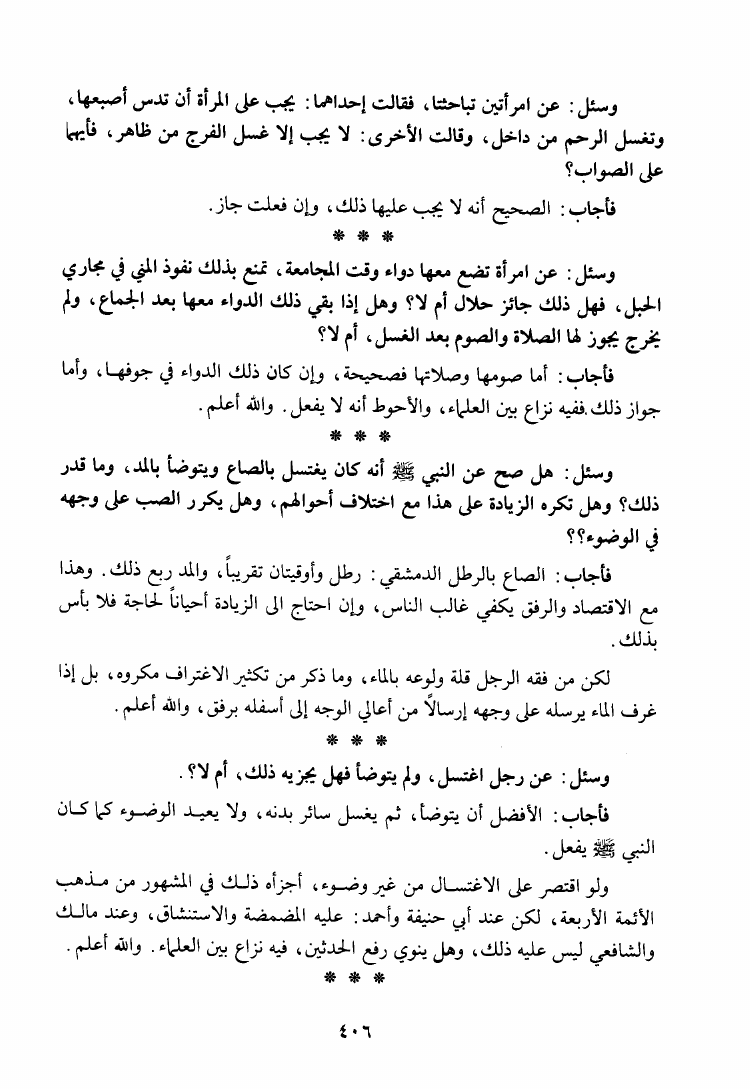 وسئل : عن امرأتين تباحثتا، فقالت إحداهما : يجب على المرأة أن تدس أصبعها،
وتغسل الرحم من داخل، وقالت الأخرى : لا يجب إلا غسل الفرج من ظاهر، فأيهما
على الصواب؟
فأجاب : الصحيح أنه لا يجب عليها ذلك، وإن فعلت جاز.
* * *
وسئل : عن امرأة تضع معها دواء وقت المجامعة، تمنع بذلك نفوذ المني في مجاري
الحبل، فهل ذلك جائز حلال أم لا؟ وهل إذا بقي ذلك الدواء معها بعد الجماع، ولم
يخرج يجوز لها الصلاة والصوم بعد الغسل، أم لا؟
فأجاب : أما صومها وصلاتها فصحيحة، وإن كان ذلك الدواء في جوفها، وأما
جواز ذلك.ففيه نزاع بين العلماء، والأحوط أنه لا يفعل. والله أعلم.
* * *
وسئل : هل صح عن النبي ﷺ أنه كان يغتسل بالصاع ويتوضأ بالمد، وما قدر
ذلك؟ وهل تكره الزيادة على هذا مع اختلاف أحوالهم، وهل يكرر الصب على وجهه
في الوضوء؟؟
فأجاب : الصاع بالرطل الدمشقي : رطل وأوقيتان تقريباً، والمد ربع ذلك. وهذا
مع الاقتصاد والرفق يكفي غالب الناس، وإن احتاج الى الزيادة أحياناً لحاجة فلا بأس
بذلك.
لكن من فقه الرجل قلة ولوعه بالماء، وما ذكر من تكثير الاغتراف مكروه، بل إذا
غرف الماء يرسله على وجهه إرسالاً من أعالي الوجه إلى أسفله برفق، والله أعلم.
* * *
وسئل : عن رجل اغتسل، ولم يتوضأ فهل يجزيه ذلك، أم لا؟.
فأجاب : الأفضل أن يتوضأ، ثم يغسل سائر بدنه، ولا يعيد الوضوء كما كان
النبي ﷺ يفعل.
ولو اقتصر على الاغتسال من غير وضوء، أجزأه ذلك في المشهور من مذهب
الأئمة الأربعة، لكن عند أبي حنيفة وأحمد : عليه المضمضة والاستنشاق، وعند مالك
والشافعي ليس عليه ذلك، وهل ينوي رفع الحدثين، فيه نزاع بين العلماء. والله أعلم.
* * *
٤٠٦